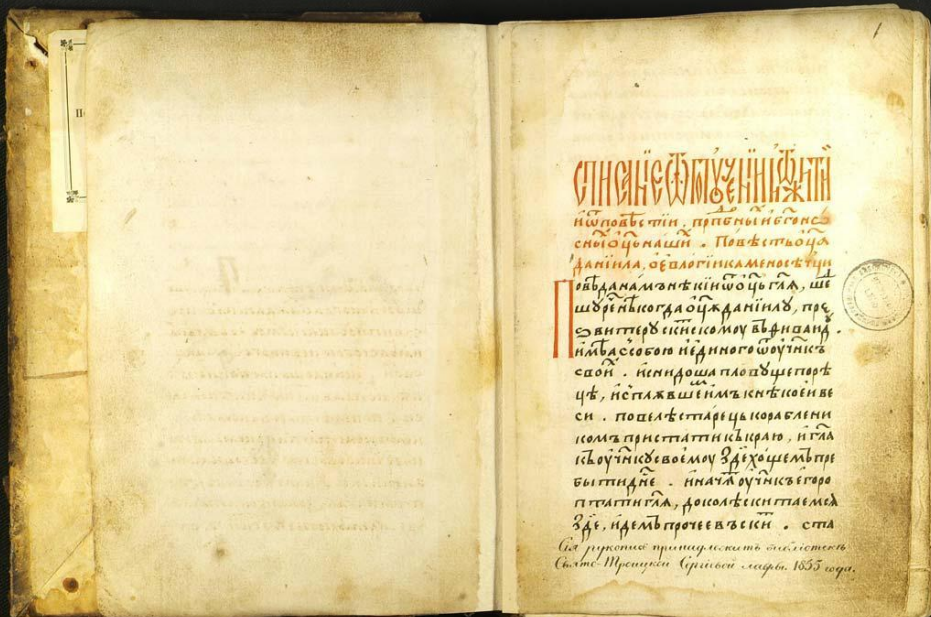 1
СПИСАНЇЕ Ѿ ПОУЧЕНЇИ И Ѿ ЖИТЇИ
и ѿ повѣстїи, прпⷣбныⷯ и бг҃онсⷪ
сныⷯ ѻц҃ъ нашиⷯ . Повѣсть ѻц҃а
данїила, ѻ еѵлогїи каменосѣчци
Повѣда намъ нѣкїи ѿ ѻц҃ъ гл҃ѧ,
когда ѻц҃ꙋ данїилꙋ, пре
ѕвитерꙋ скискомоу въ ѳиваидⷣ .
имѣа с собою и единого ѿ оуч҃нкъ
своиⷯ . и снидоша пловꙋще по рѣ
цѣ, и исплавшеⷨ имъ к нѣкоеи ве
си . повелѣ старецъ кораблени
комъ пристати къ краю, и гл҃а
къ оуч҃нкꙋ своемоу здѣ хощемъ пре
быти дн҃е . и начаⷮ оуч҃нкъ его ро
птати гл҃ѧ, доколѣ скитаемсѧ
здѣ, идемъ прочее въ скиⷮ . ста
Сія рукопись принадлежитъ библіотекѣ
Свято-Троицкой Сергіевой лавры. 1855 года.